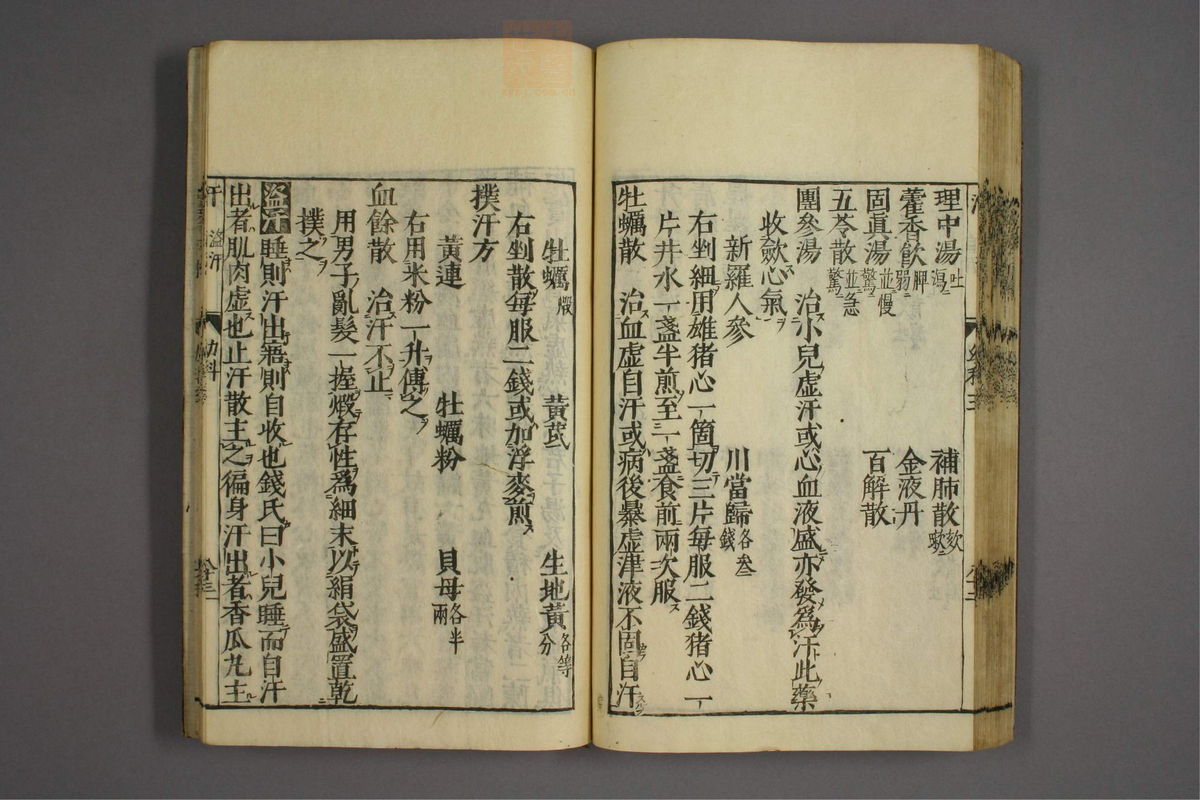 理中湯 吐瀉 補肺散 欬嗽
藿香飲 脾弱 金液丹
固眞湯 並慢驚 百解散
五苓散 並急驚
團參湯 治小兒虚汗或心血液盛亦發爲汗此藥
收歛心氣
新羅人參 川當歸 各叁錢
右剉細用雄猪心一箇切三片毎服二錢猪心一
片井水一盞半煎至一盞食前兩次服
牡蠣散 治血虚自汗或病後暴虚津液不固自汗
牡蠣 煆 黃芪 生地黃 各等分
右剉散毎服二錢或加浮麥煎
撲汗方
黃連 牡蠣粉 貝母 各半兩
右用米粉一升傅之
血餘散 治汗不止
用男子亂髮一握煆存性爲細末以絹袋盛置乾
撲之
盜汗 睡則汗出寤則自收也錢氏曰小兒睡而自汗
出者肌肉虚也止汗散主之徧身汗出者香瓜丸主
汗 盜汗 幼科 八十三